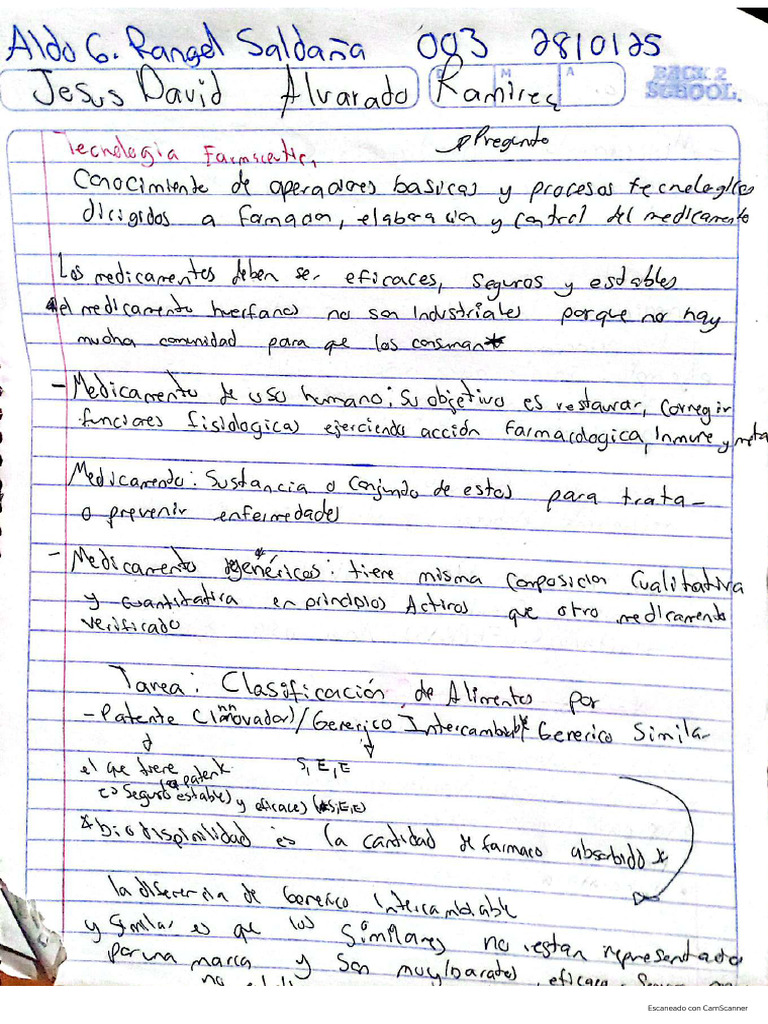 Aldo G. Rangel Saldaña 003 28/01/25
Jesus David Alvarado Ramirez
M A
BACK 2
SCHOOL.
Pregunto
Tecnologia Farmaceutic,
Conocimiento de operaciones basicas y procesos tecnologicos
dirigidos a formacion, elaboracion y control del medicamento
Los medicamentos deben ser eficaces, seguros y estables
el medicamento huerfanos no son Industriales porque no hay
mucha comunidad para que los consuman*
- Medicamento de uso humano; Su objetivo es restaurar, Corregir
funciones fisiologicas ejerciendo acción farmacologica, Inmune y meta
Medicamento: Sustancia o Conjundo de estos para trata-
o prevenir enfermedades
- Medicamento genéricos: tiene misma composicion Cualitativa
y cuantitativa en principios Activos que otro medicamento
verificado
Tarea: Clasificación de Alimentos por
- Patente (Innovador)/Generico Intercambiable Generico Similar
el que tiene patent S, E, E
Seguro estable) y eficaces (*S,E,E)
*biodisponilidad es la cantidad de farmaco absorbido *
la diferencia de Generico Intercambiable
y Similar es que los Similares no estan representado
por una marca y son muy baratos, eficace
no
Escaneado con CamScanner